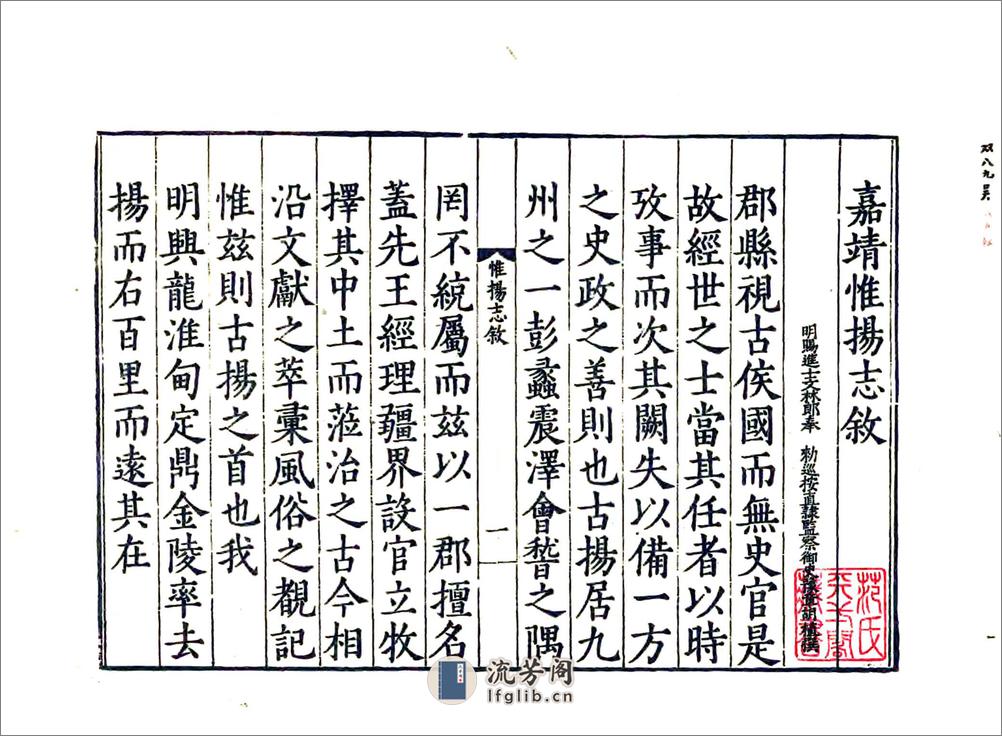 嘉靖惟揚志敘
明賜進士文林郎奉　勑巡按直隸監察御史
郡縣視古侯國而無史官是
故經世之士當其任者以時
攷事而次其闕失以備一方
之史政之善則也古揚居九
州之一彭蠡震澤會嵇之隅
惟揚志敘
一
罔不統屬而玆以一郡擅名
蓋先王經理疆界設官立牧
擇其中土而蒞治之古今相
沿文獻之萃稾風俗之覩記
惟玆則古揚之首也我
明興龍淮甸定鼎金陵率去
揚而右百里而遠其在
范氏天一閣
流芳阁
lfglib.cn